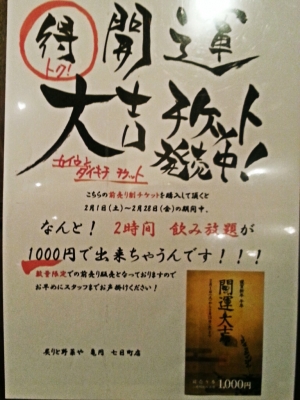 得 開運
トク!
大吉チケット
発売中!
カイウン ダイキチ チケット
こちらの前売り割チケットを購入して頂くと
2月1日(土)〜2月28日(金)の期間中、
なんと! 2時間 飲み放題が
1000円で出来ちゃうんです!!!
数量限定での前売り販売となっておりますので
お早めにスタッフまでお声掛けください!
炙りと野菜や 亀円 七日町店
開運大吉
1,000円